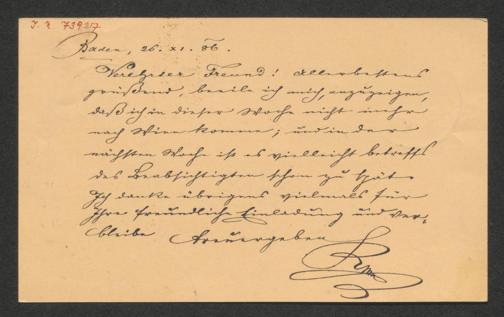 I. N. 73927
Baden, 26. XI. 86.
Verehrter Freund! Allerbestens
grüßend, beeile ich mich, anzuzeigen,
daß ich in dieser Woche nicht mehr
nach Wien komme; und in der
nächsten Woche ist es vielleicht betreffs
des Beabsichtigten schon zu spät.
Ich danke übrigens vielmals für
Ihre freundliche Einladung und ver-
bleibe treuergeben